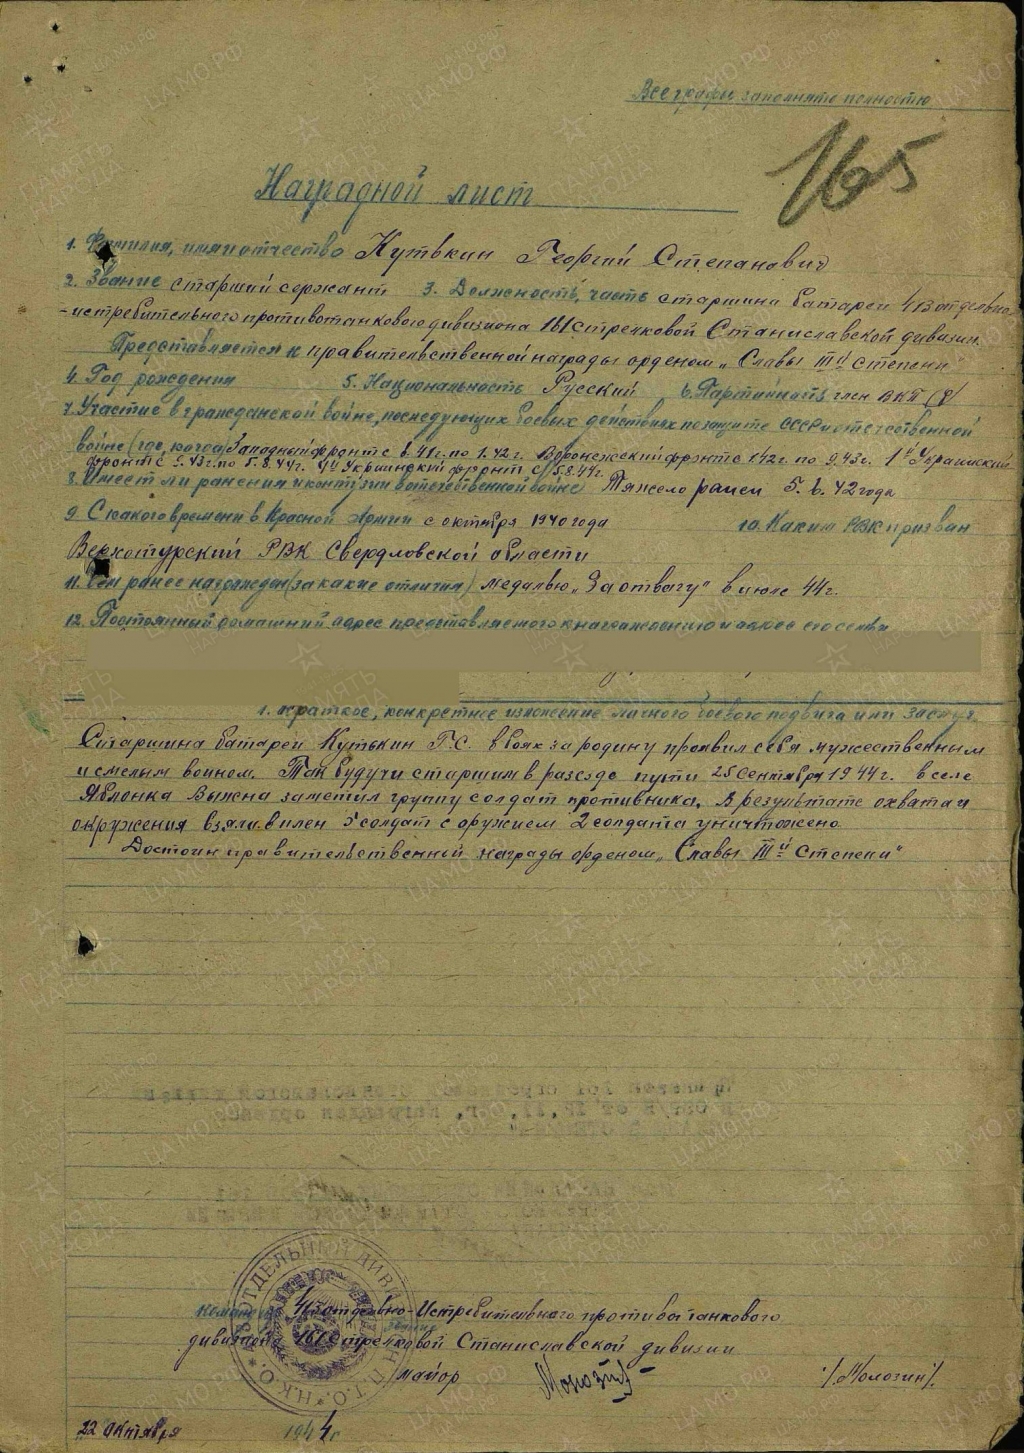 Все графы заполнять полностью
165
Наградной лист
1. Фамилия, имя и отчество Кутькин Георгий Степанович
2. Звание старший сержант 3. Должность, часть старшина батареи 413 отдельно
-истребительного противотанкового дивизиона 161 стрелковой Станиславской дивизии
Представляется к правительственной награды орденом „Славы III й степени"
4. Год рождения 5. Национальность Русский 6. Партийность член ВКП(б)
7. Участие в гражданской войне, последующих боевых действиях по защите СССР и отечественной
войне (где, когда) Западный фронт с 6.41г. по 1.42г. Воронежский фронт с 1.42г. по 9.43г. 1й Украинский
фронт с 9.43г. по 5.8.44г. 4й Украинский фронт с 5.8.44г.
8. Имеет ли ранения и контузии в отечественной войне Тяжело ранен 5.6.42 года
9. С какого времени в Красной Армии с октября 1940 года 10. Каким РВК призван
Верхотурский РВК Свердловской области
11. Чем ранее награжден (за какие отличия) медалью „За отвагу" в июле 44г.
12. Постоянный домашний адрес представляемого к награждению и адрес его семьи
1. Краткое, конкретное изложение личного боевого подвига или заслуг
Старшина батареи Кутькин Г.С. в боях за родину проявил себя мужественным
и смелым воином. Так будучи старшим в разезде пути 25 сентября 1944г. в селе
Яблонка Выжна заметил группу солдат противника. В результате охвата и
окружения взяли в плен 5 солдат с оружием 2 солдата уничтожено.
Достоин правительственной награды орденом „Славы III й степени"
Командир 413 отдельно-Истребительного противотанкового
дивизиона 161 Стрелковой Станиславской дивизии
майор /Молозин/.
22 октября 1944г